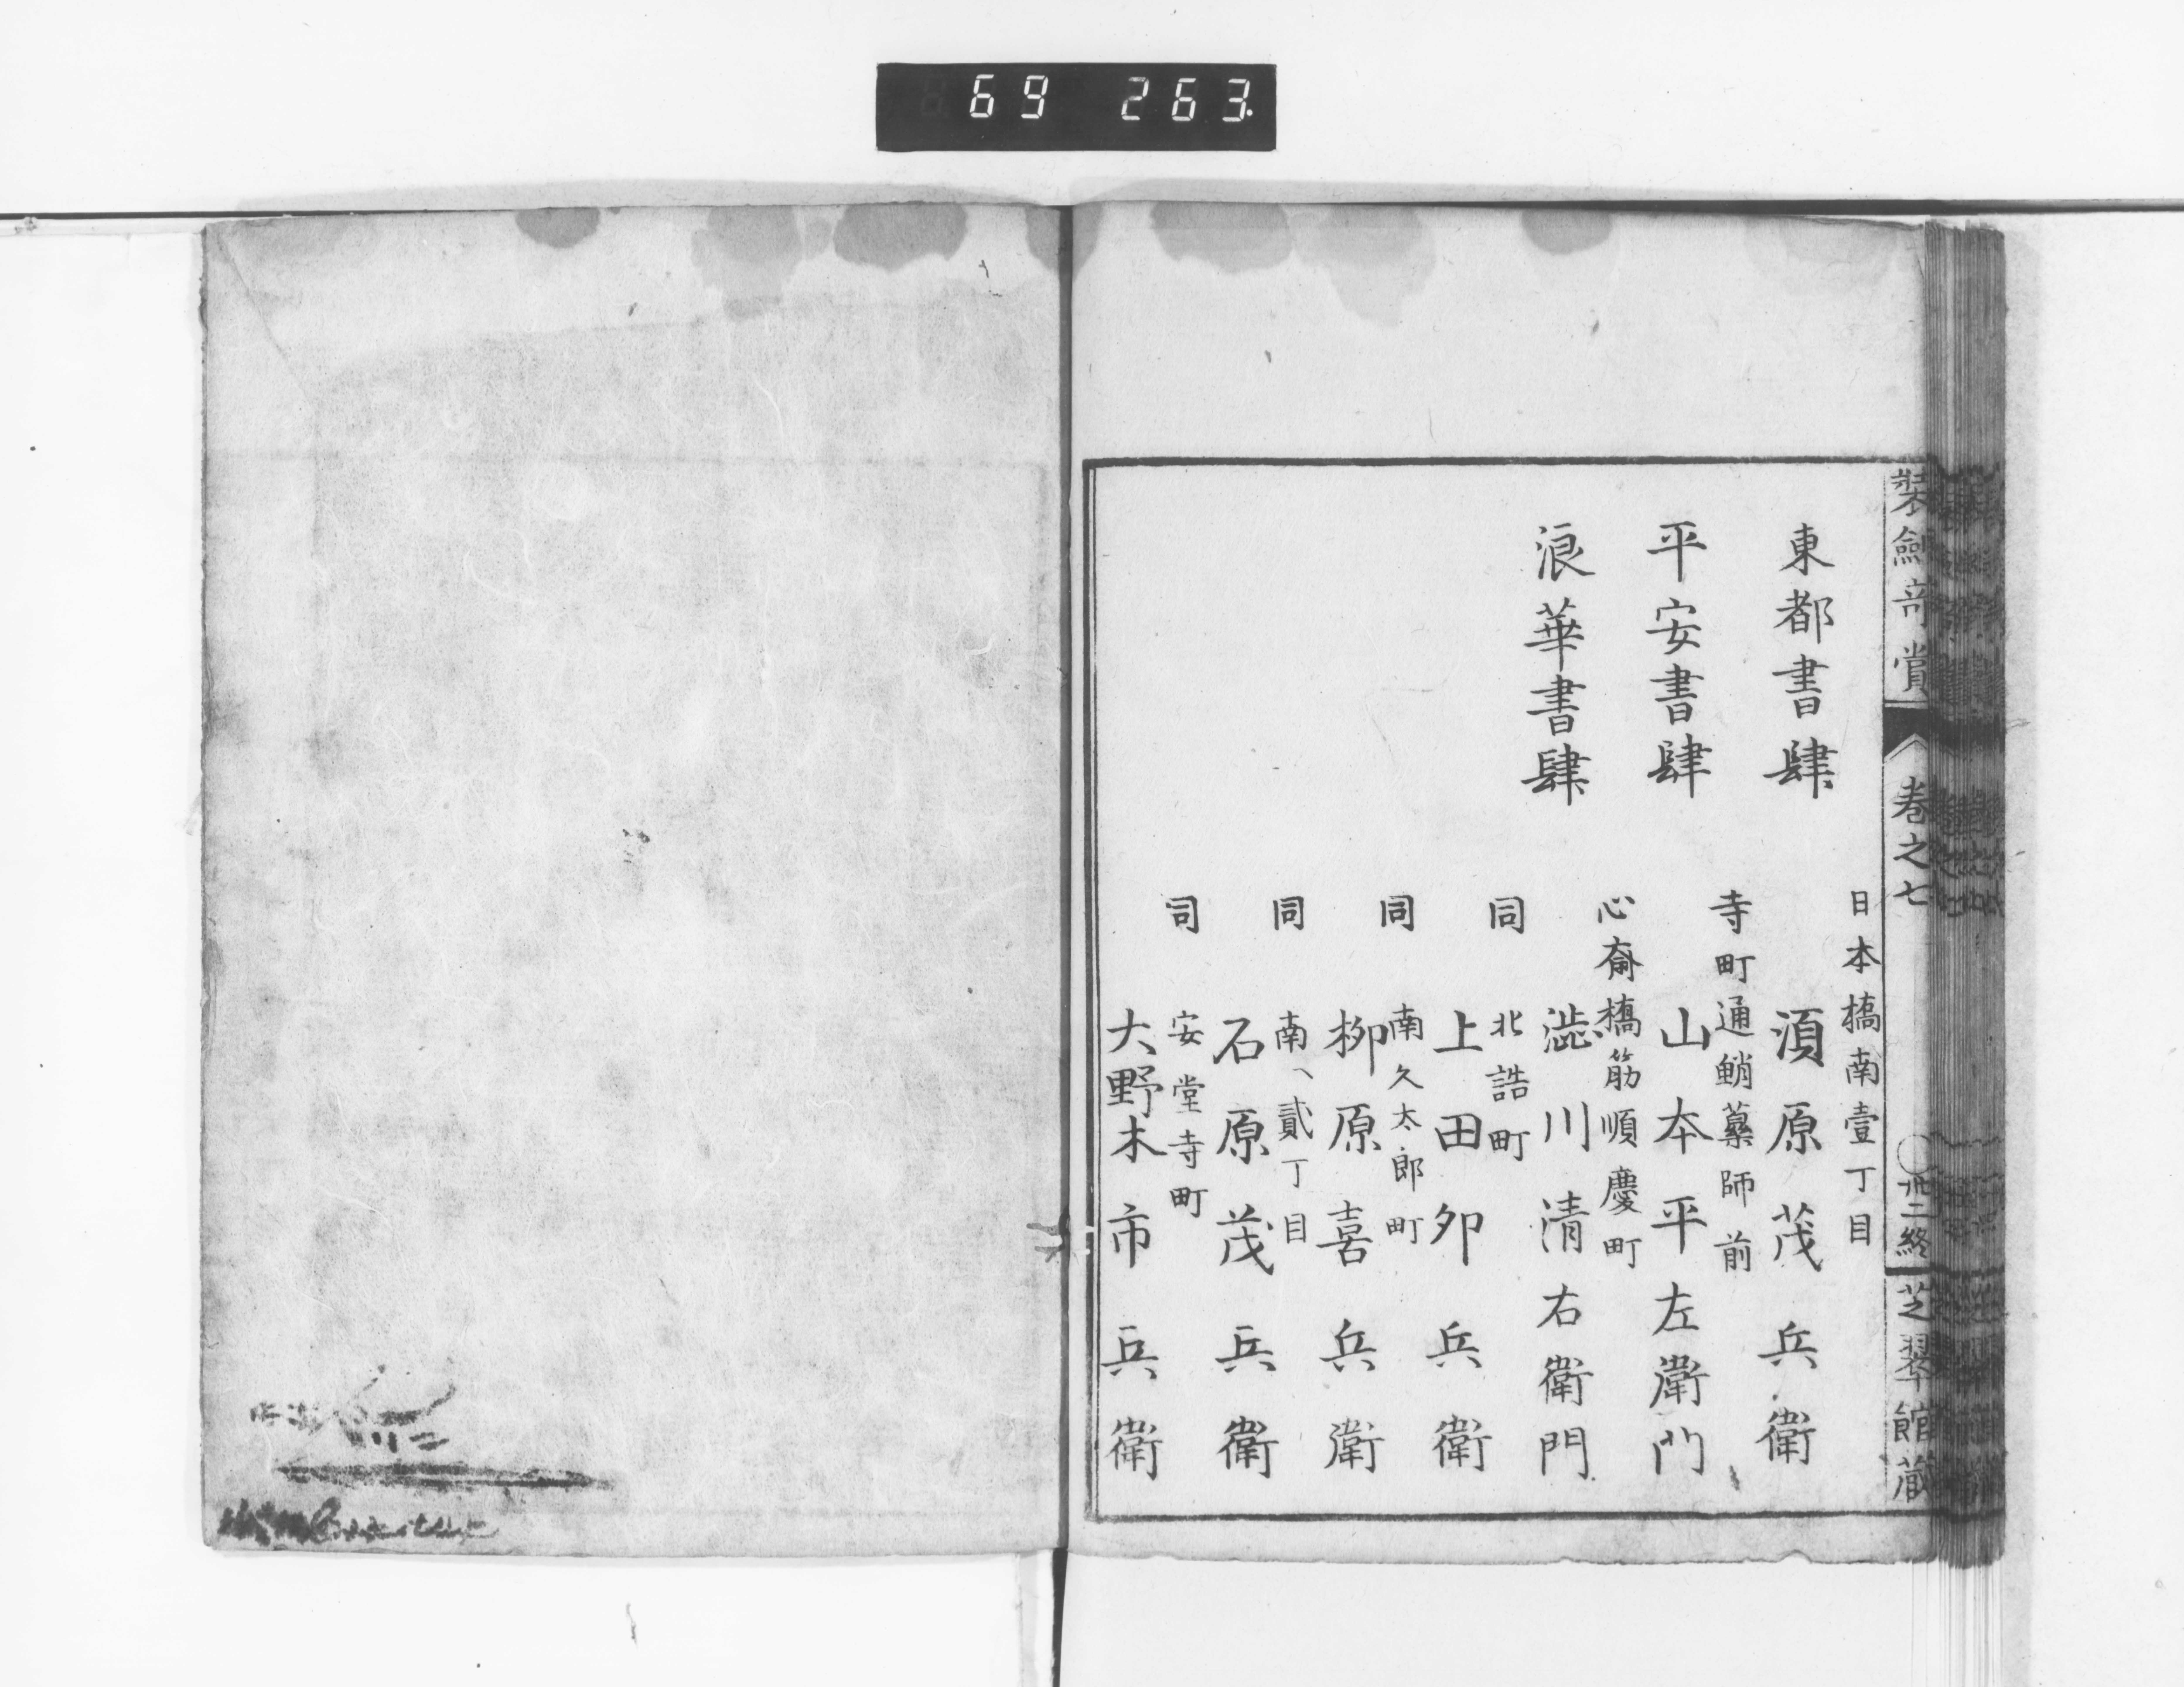 69 263.
装劍竒賞 巻之七 ○卌二終 芝翠館蔵
東都書肆
日本橋南壹丁目
須原茂兵衛
平安書肆
寺町通蛸藥師前
山本平左衛門
浪華書肆
心斎橋筋順慶町
澁川清右衛門
同 北詰町
上田卯兵衛
同 南久太郎町
柳原喜兵衛
同 南へ貳丁目
石原茂兵衛
同 安堂寺町
大野木市兵衛